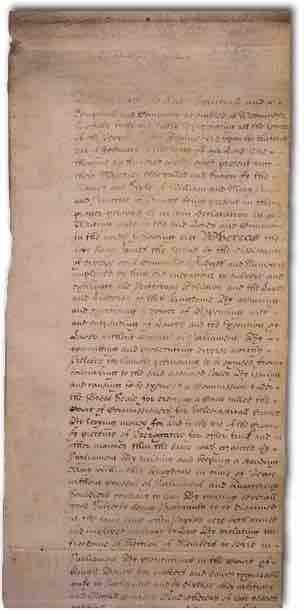 Spirituall and
Temporall and Comons assembled at Westminster
fully and freely representing all the Estates
of the People upon the thirteenth
day of February in the yeare of our Lord One
thousand six hundred eighty eight present unto
their Majesties then called and known by the
Names and Stile of William and Mary
and Princesse of Orange being present in their
proper persons a certaine Declaration in
Writeing made by the said Lords and Comons
in the words following viz Whereas the
late King James the Second by the Assistance
of diverse evill Counsellors Judges and Ministers
imployed by him did endeavour to subvert and
extirpate the Protestant Religion and the Lawes
and Liberties of this Kingdome By assumeing
and exercising a power of dispensing with
and suspending of Lawes and the Execution of
Lawes without Consent of Parlyament By
committing and prosecuting diverse worthy
Prelates for humbly petitioning to be excused from
concurring to the said assumed power By issueing
and causing to be executed a Commission under
the Great Seale for erecting a Court called the
Court of Commissioners for Ecclesiasticall Causes
By levying money for and to the use of the Crowne
by pretence of Prerogative for other time and in
other manner then the same was granted by
Parlyament By raising and keeping a standing
Army within this Kingdome in time of Peace
without consent of Parlyament and quartering
Souldiers contrary to law By causing severall
good Subjects being Protestants to be disarmed
at the same time when Papists were both armed
and imployed contrary to Law By violating the
freedome of Election of Members to serve in
Parlyament By prosecutions in the Court of
Kings Bench for matters and causes cognizable
onely in Parlyament and by diverse other arbitrary
and illegall courses And whereas of late yeares